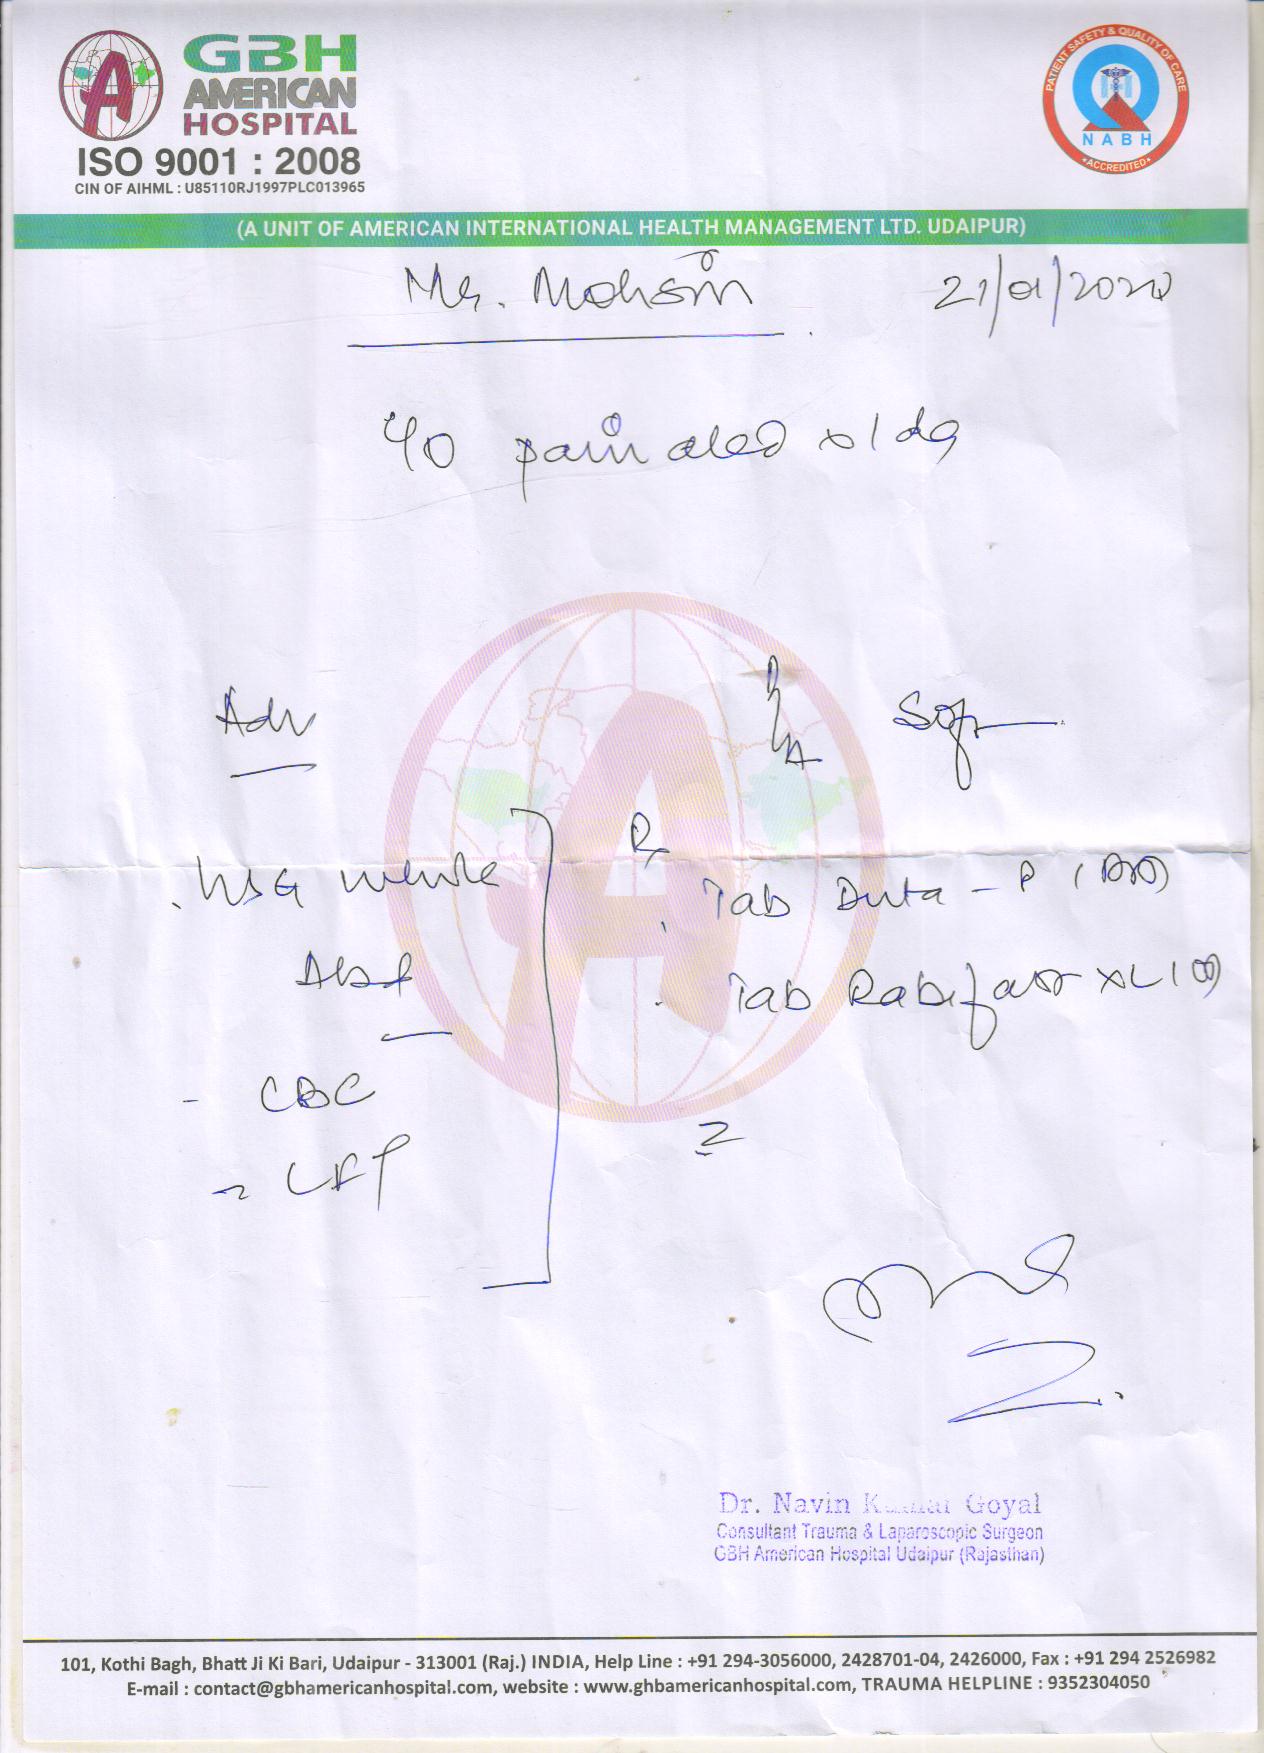 GBH
AMERICAN
HOSPITAL
ISO 9001 : 2008
CIN OF AIHML : U85110RJ1997PLC013965
PATIENT SAFETY & QUALITY OF CARE
NABH
ACCREDITED
(A UNIT OF AMERICAN INTERNATIONAL HEALTH MANAGEMENT LTD. UDAIPUR)
Mr. Mohsin 21/01/2020
40 pain abed x 1 day
Adv P/A Soft
USG whole
Abd
- CBC
- LFT
Rx
Tab Duta - P (BD)
Tab Rabifast XL (OD)
Dr. Navin Kumar Goyal
Consultant Trauma & Laparoscopic Surgeon
GBH American Hospital Udaipur (Rajasthan)
101, Kothi Bagh, Bhatt Ji Ki Bari, Udaipur - 313001 (Raj.) INDIA, Help Line : +91 294-3056000, 2428701-04, 2426000, Fax : +91 294 2526982
E-mail : contact@gbhamericanhospital.com, website : www.ghbamericanhospital.com, TRAUMA HELPLINE : 9352304050